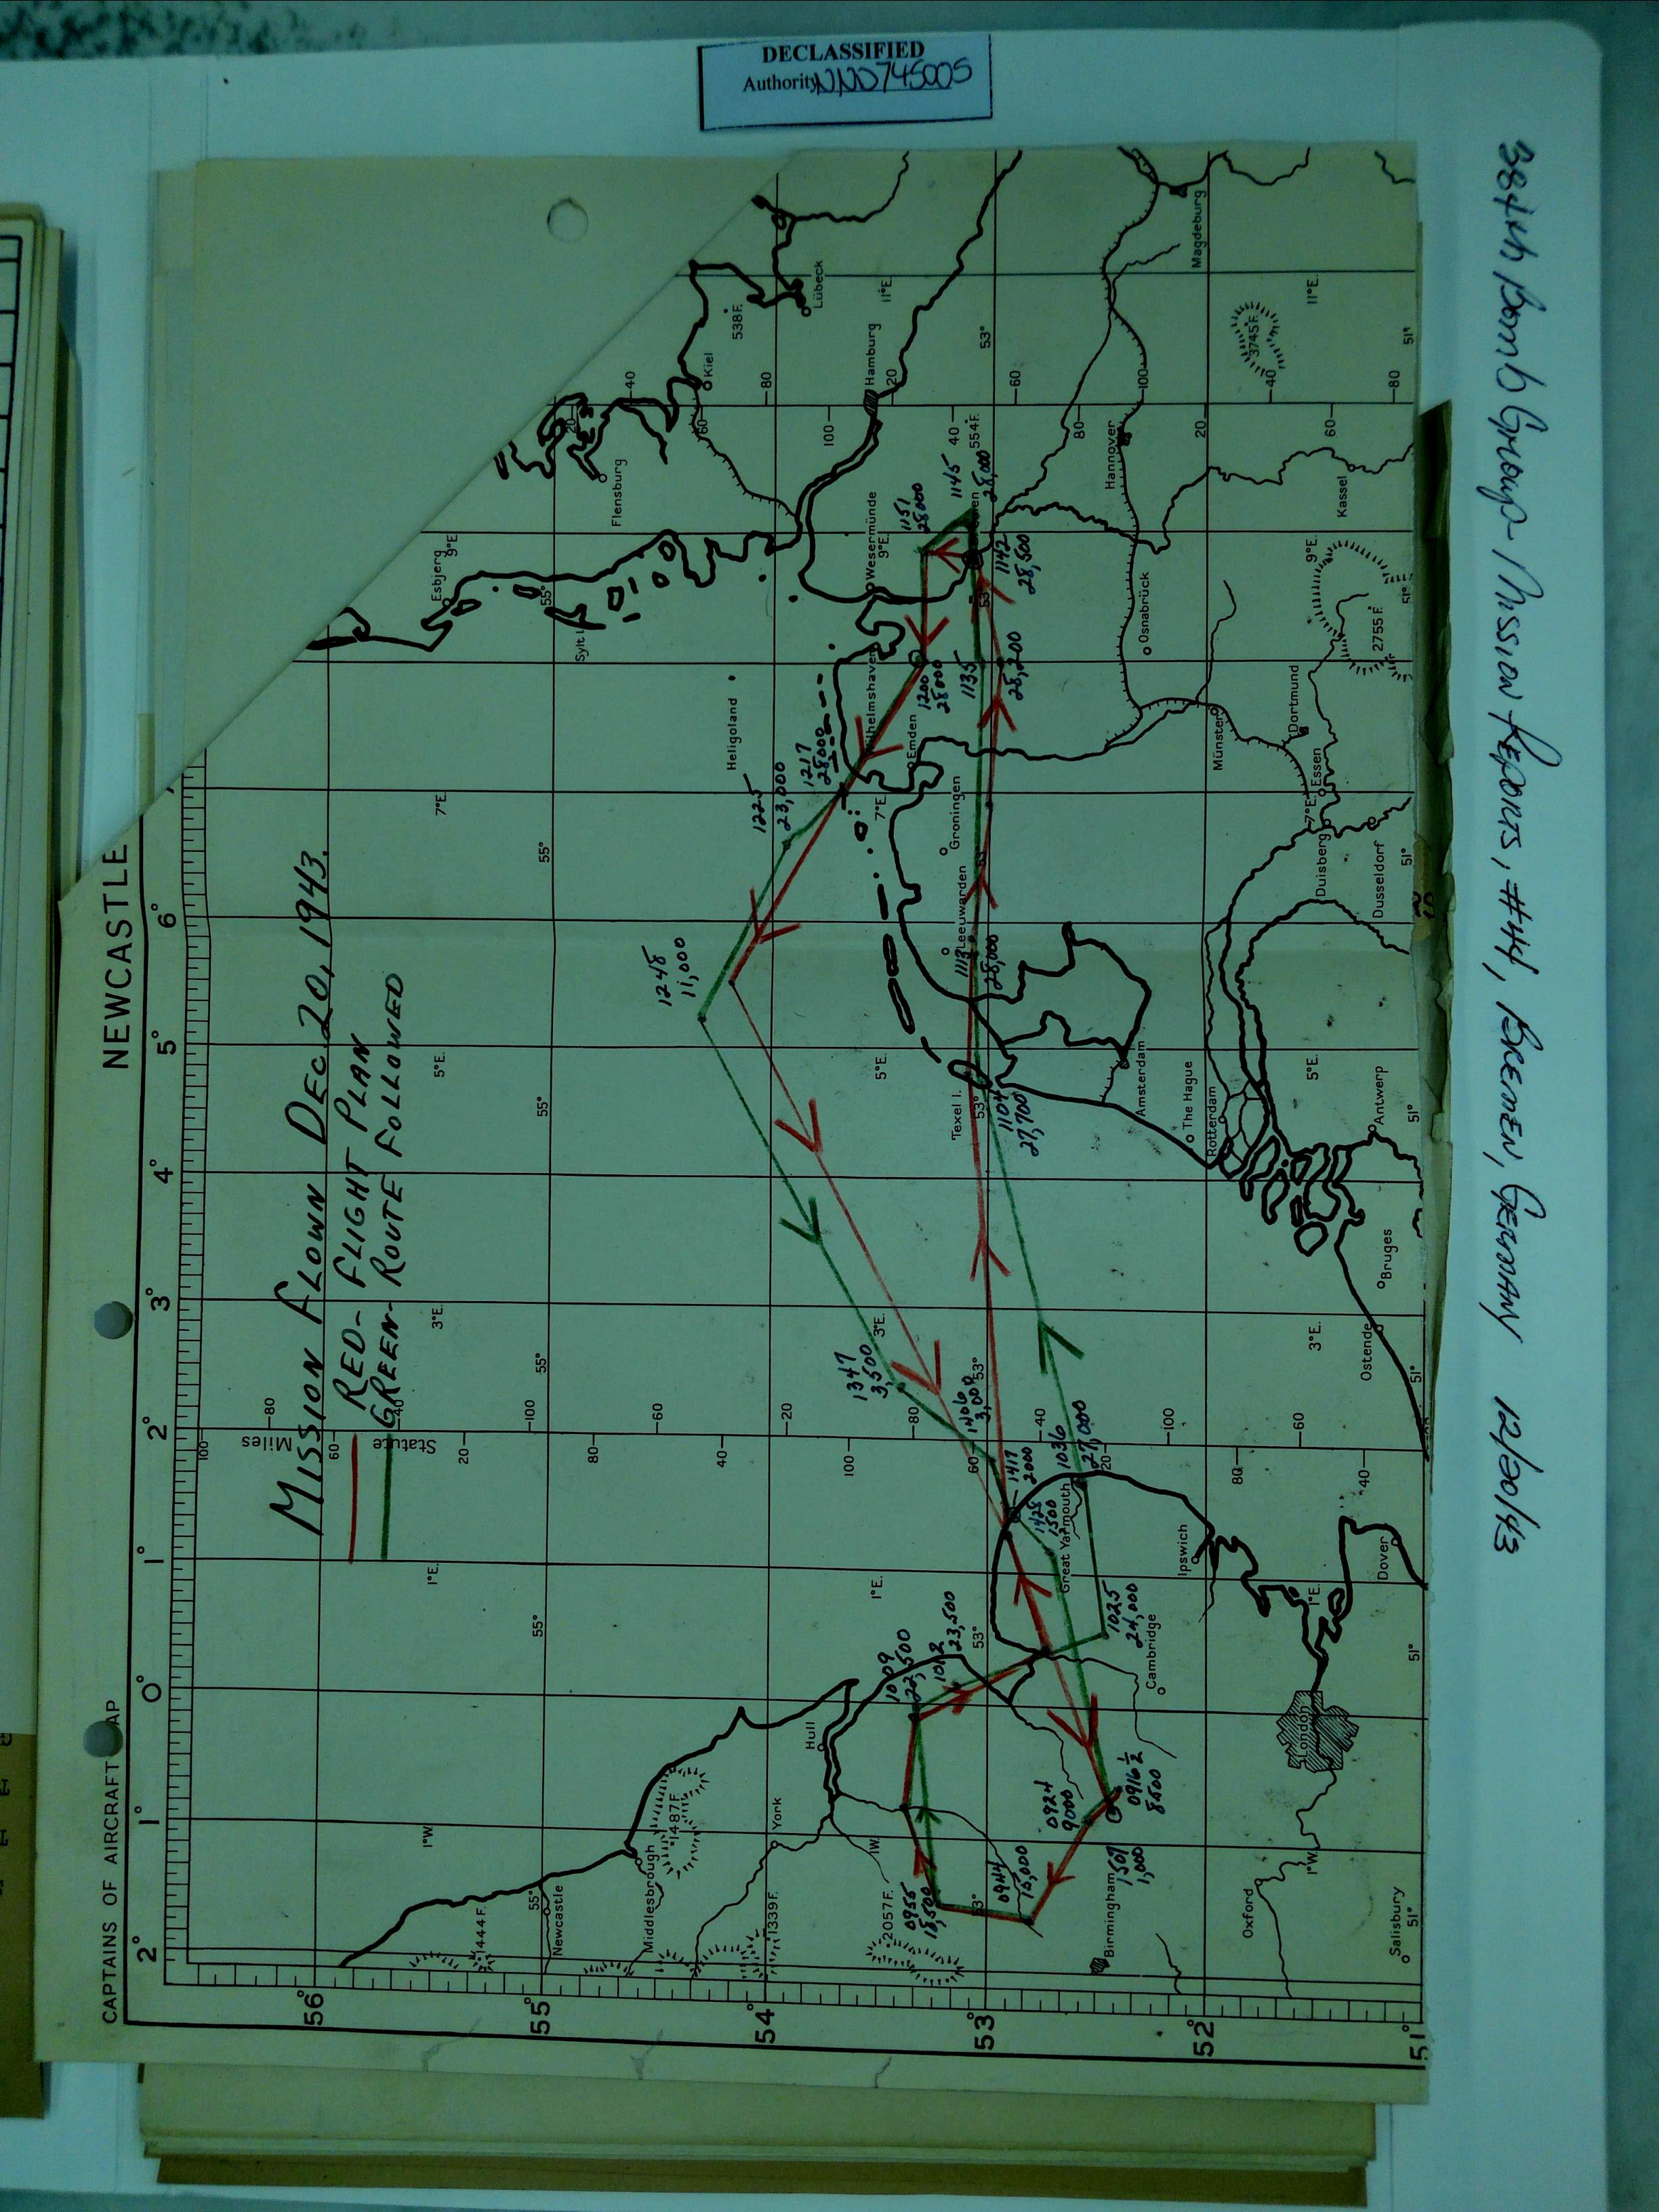 DECLASSIFIED
Authority NND745005
384th Bomb Group - Mission Reports, #44, Bremen, Germany 12/20/43
CAPTAINS OF AIRCRAFT MAP
NEWCASTLE
MISSION FLOWN DEC 20, 1943.
RED- FLIGHT PLAN
GREEN- ROUTE FOLLOWED
Statute Miles
2° 1° 0° 1° 2° 3° 4° 5° 6°
56°
55°
54°
53°
52°
51°
1444 F.
Newcastle
Middlesbrough
1487 F.
York
1339 F.
Hull
2057 F.
Birmingham
Cambridge
Oxford
Salisbury
London
Ipswich
Great Yarmouth
Dover
Ostende
Bruges
Antwerp
Rotterdam
The Hague
Amsterdam
Texel I.
Leeuwarden
Groningen
Emden
Wilhelmshaven
Wesermünde
Heligoland
Sylt I.
Esbjerg
Flensburg
Kiel
538 F.
Lübeck
Hamburg
554 F.
Hannover
Magdeburg
3745 F.
Kassel
Osnabrück
2755 F.
Münster
Dortmund
Essen
Duisberg
Dusseldorf
0916 1/2
8500
0924
9000
0944
15,000
0955
18,500
1009
22,500
1012
23,500
1025
24,000
1036
27,000
1104
27,700
1113
28,000
1135
28,200
1142
28,500
1145
28,000
1151
28000
1200
28000
1217
28000
1225
23,000
1248
11,000
1347
3,500
1406
3,000
1417
2000
1428
1500
1507
1,000